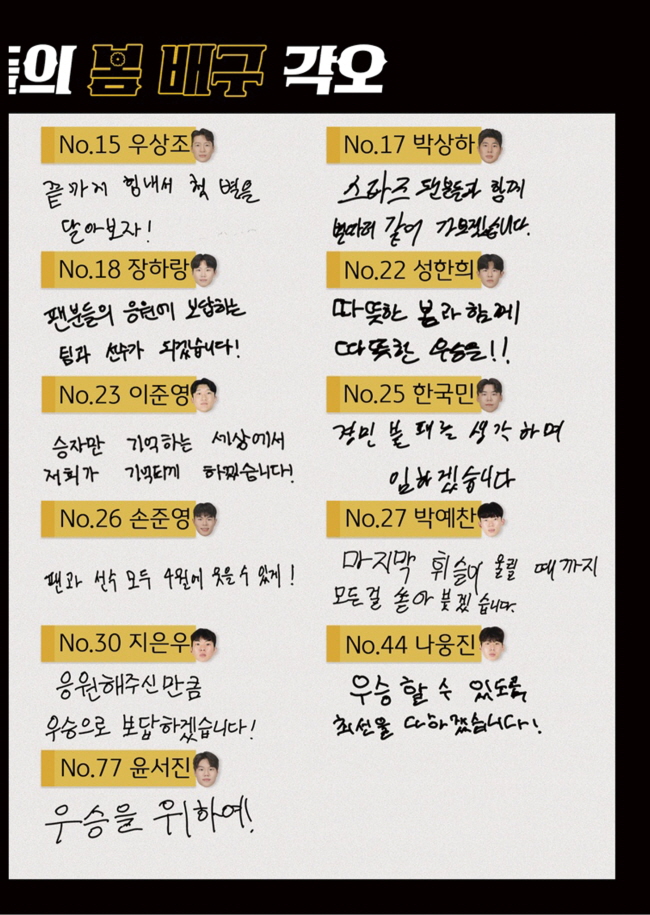 들의 봄 배구 각오
No.15 우상조
끝까지 힘내서 척 별을
달아보자!
No.17 박상하
스타즈 팬분들과 함께
같이
No.18 장하랑
팬분들의 응원에 보답하는
팀과 선수가 되겠습니다!
No.22 성한희
따뜻한 봄과 함께
따뜻한 우승을!!
No.23 이준영
승자만 기억하는 세상에서
저희가 기억되게 하겠습니다!
No.25 한국민
경민 불패를 생각하며
임하겠습니다
No.26 손준영
팬과 선수 모두 4월에 웃을 수 있게!
No.27 박예찬
마지막 휘슬이 울릴 때까지
모든걸 쏟아 붓겠습니다.
No.30 지은우
응원해주신만큼
우승으로 보답하겠습니다!
No.44 나웅진
우승 할 수 있도록
최선을 다하겠습니다!
No.77 윤서진
우승을 위하여!